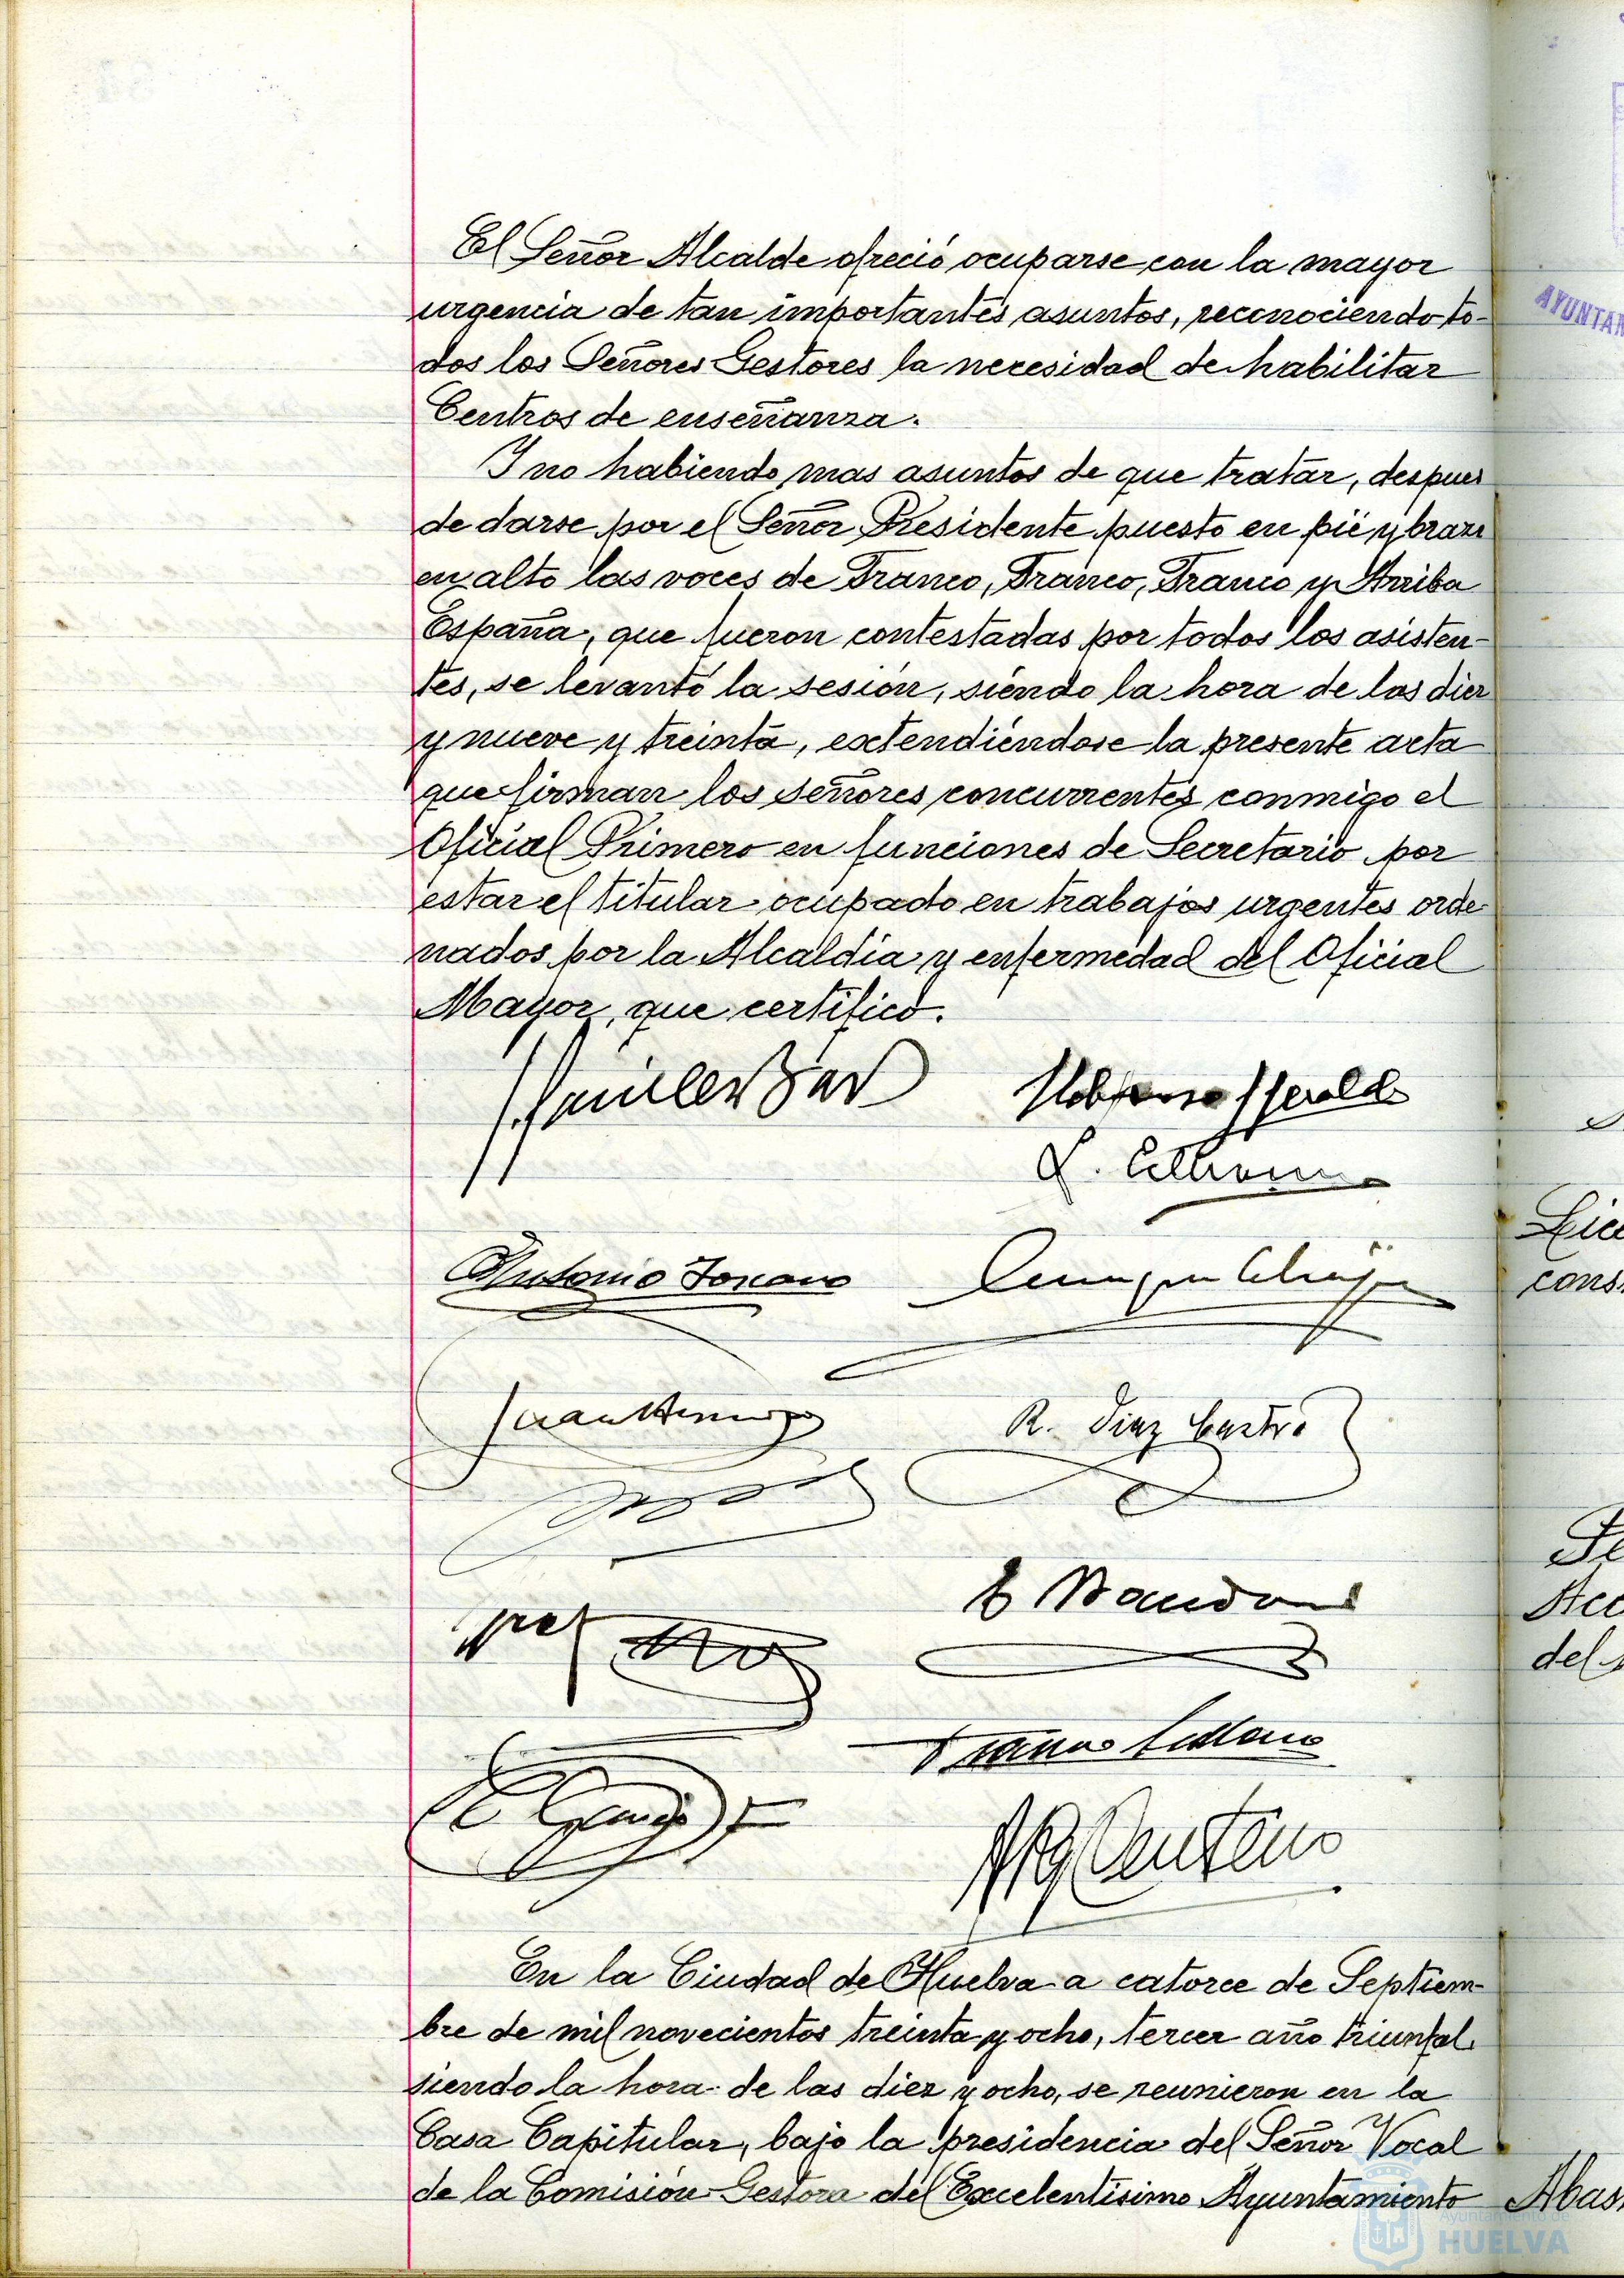 El Señor Alcalde ofreció ocuparse con la mayor
urgencia de tan importantes asuntos, reconociendo to-
dos los Señores Gestores la necesidad de habilitar
Centros de enseñanza.
Y no habiendo mas asuntos de que tratar, despues
de darse por el Señor Presidente puesto en pié y brazo
en alto las voces de Franco, Franco, Franco y Arriba
España, que fueron contestadas por todos los asisten-
tes, se levantó la sesión, siendo la hora de las diez
y nueve y treinta, extendiéndose la presente acta
que firman los señores concurrentes conmigo el
Oficial Primero en funciones de Secretario por
estar el titular ocupado en trabajos urgentes orde-
nados por la Alcaldía y enfermedad del Oficial
Mayor, que certifico.
Antonio
R. Diaz Castro
Centeno
En la Ciudad de Huelva a catorce de Septiem-
bre de mil novecientos treinta y ocho, tercer año triunfal,
siendo la hora de las diez y ocho, se reunieron en la
Casa Capitular, bajo la presidencia del Señor Vocal
de la Comisión Gestora del Excelentísimo Ayuntamiento
Ayuntamiento de
HUELVA
AYUNTAM
Lice
cons
Acc
del
Abas